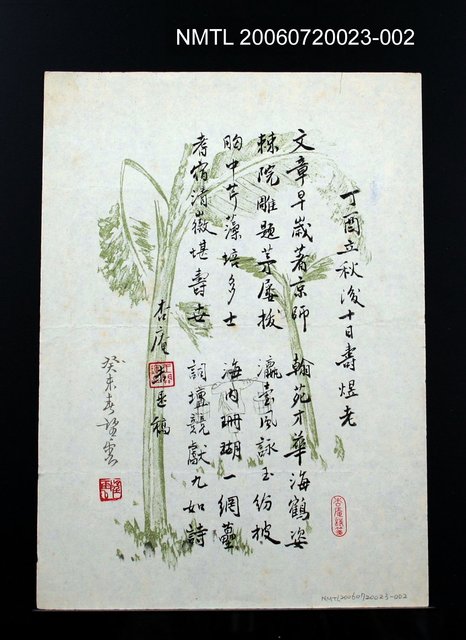 NMTL 20060720023-002
丁酉立秋後十日壽煜老
文章早歲著京師 翰苑才華海鶴姿
棘院雕題茅屢拔 瀛臺風詠玉份披
胸中芹藻培多士 海內珊瑚一網羅
耆宿清徽堪壽世 詞壇競獻九如詩
杏庵 稿
癸未春
NMTL20060720023-002